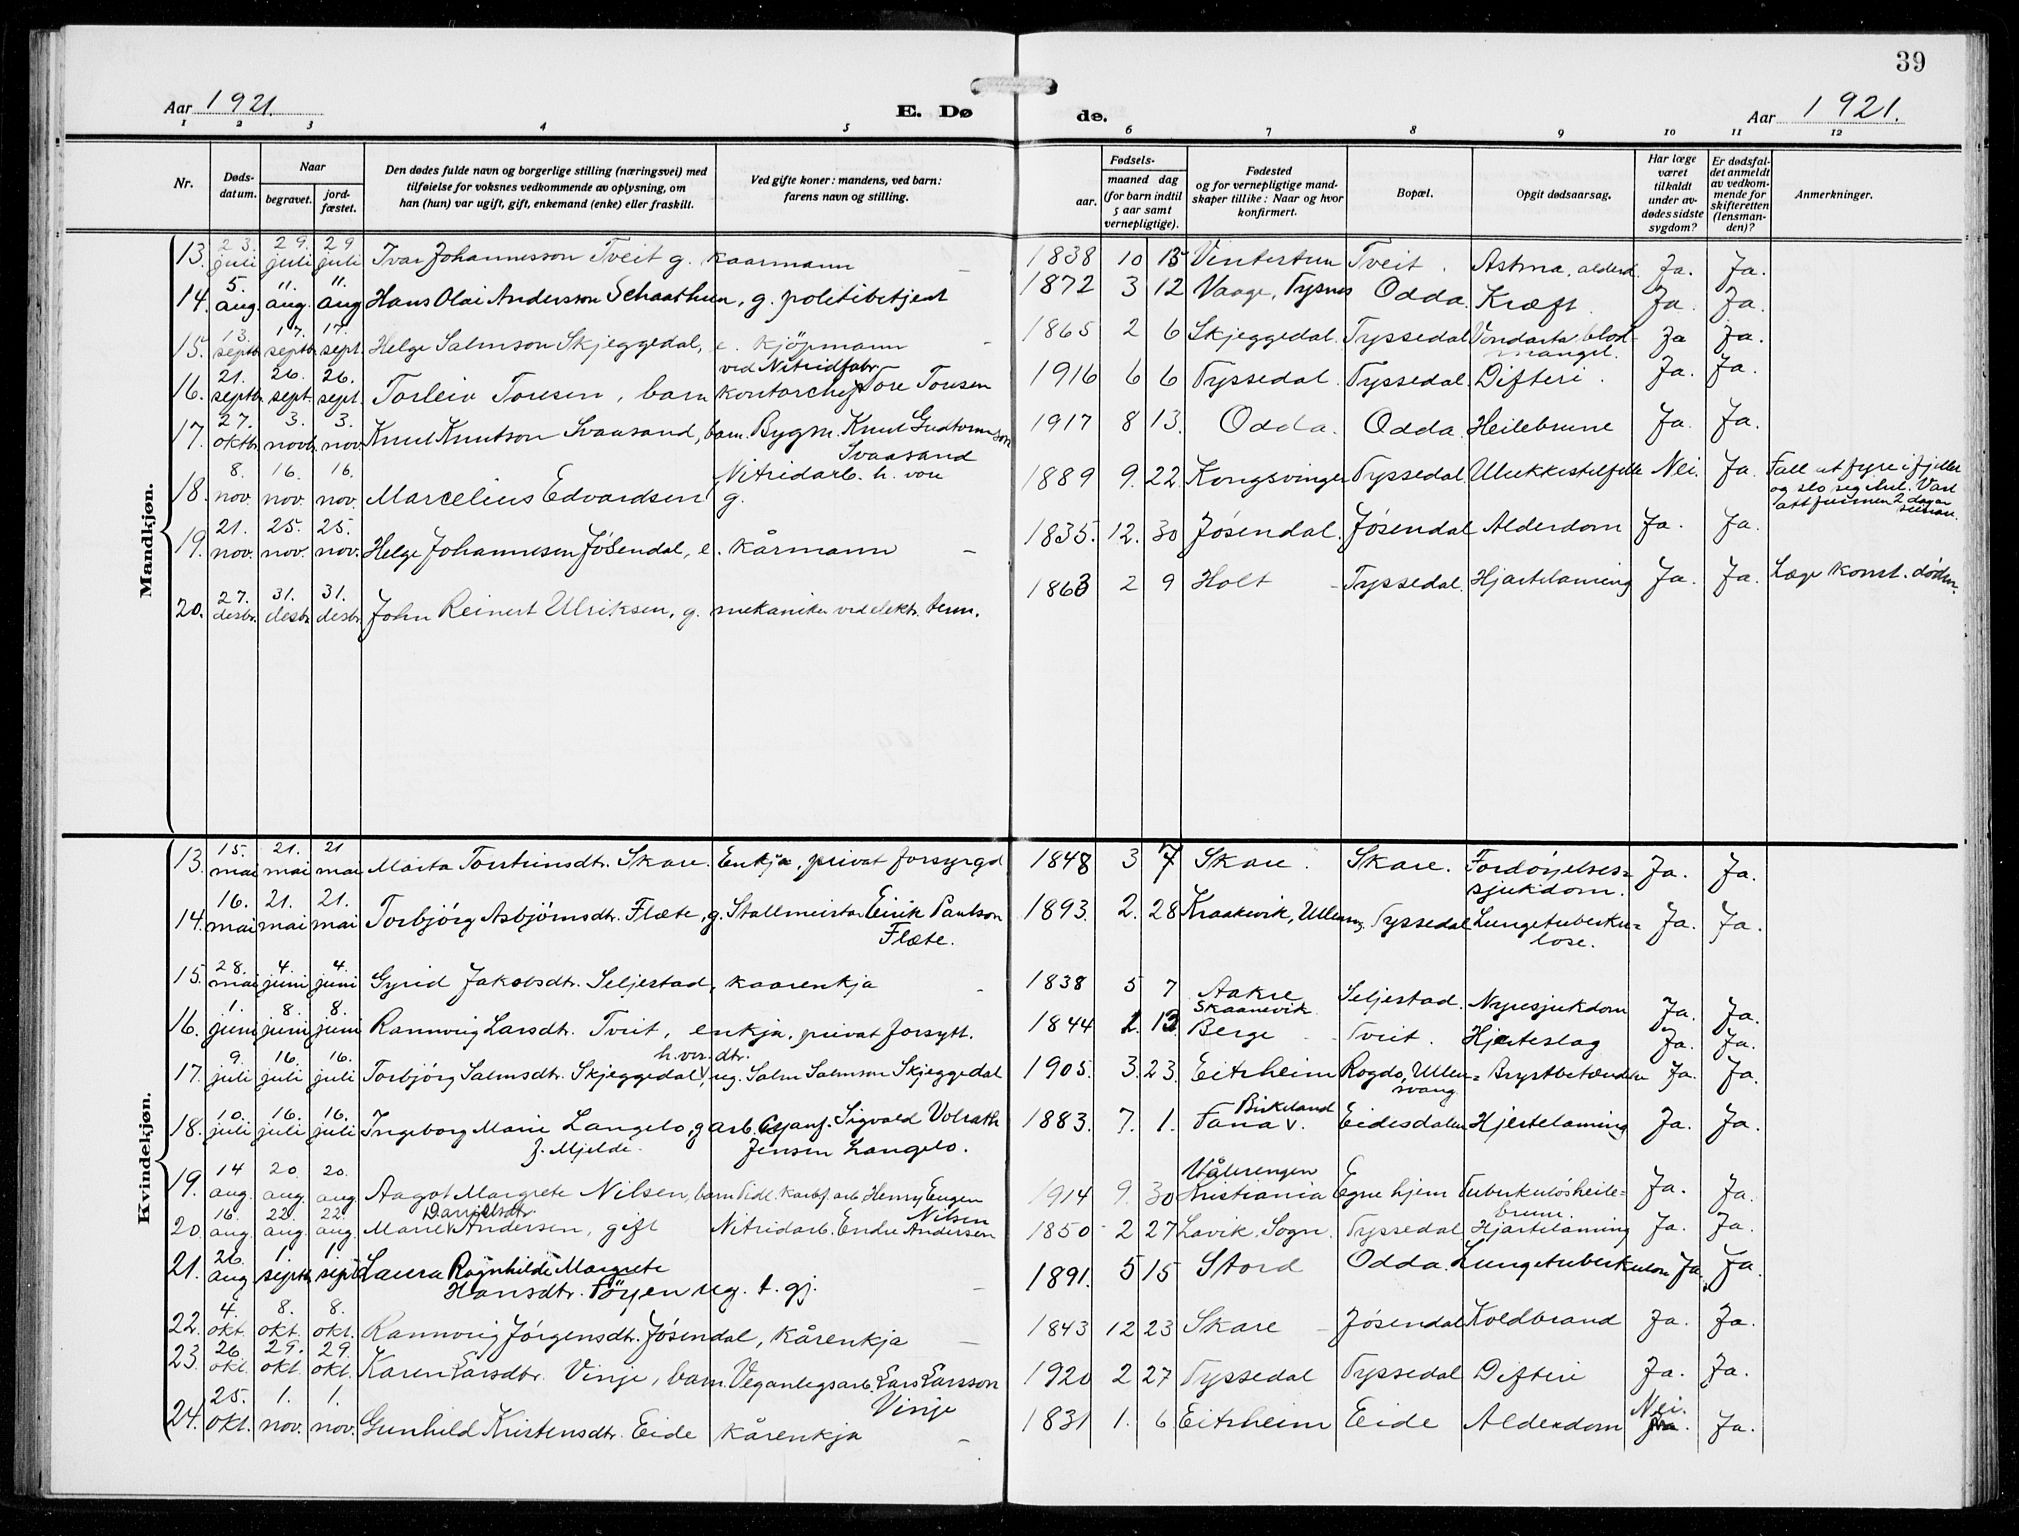 39
Aar 1921. E. Dø de. Aar 1921.
1 2 3 4 5 6 7 8 9 10 11 12
Nr. Døds-datum. Naar begravet. jord-fæstet. Den dødes fulde navn og borgerlige stilling (næringsvei) med tilføielse for voksnes vedkommende av oplysning, om han (hun) var ugift, gift, enkemand (enke) eller fraskilt. Ved gifte koner: mandens, ved barn: farens navn og stilling. Fødsels- aar. maaned dag (for barn indtil 5 aar samt vernepligtige). Fødested og for vernepligtige mand-skaper tillike: Naar og hvor konfirmert. Bopæl. Opgit dødsaarsag. Har læge været tilkaldt under av-dødes sidste sygdom? Er dødsfal-det anmeldt av vedkom-mende for skifteretten (lensman-den)? Anmerkninger.
Mandkjøn.
13. 23. juli 29. juli 29 juli Ivar Johannesson Tveit g. kaarmann 1838 10 15 Vintertun Tveit. Astma, alderd. Ja. Ja.
14. 5. aug. 11. aug. 11. aug Hans Olai Andersson Schaathun, g. politibetjent 1872 3 12 Vaage, Tysnes Odda. Kræft. Ja. Ja.
15. 13. septbr. 17. septbr. 17. sept. Helge Salmson Skjeggedal, e. kjöpmann 1865 2 6 Skjeggedal. Tyssedal Vondarta blod-mangel. Ja Ja.
16. 21. septbr. 26. sept. 26. sept. Torleiv Toresen, barn ved Nitridfabr. kontorchef Tore Toresen 1916 6 6 Tyssedal. Tyssedal. Difteri. Ja. Ja.
17. 27. oktbr. 3. novb. 3. nov. Knut Knutson Svaasand, barn. Bygm. Knut Gudtormson Svaasand 1917 8 13. Odda. Odda. Heilebrune Ja. Ja.
18. 8. nov. 16. nov. 16. nov. Marcelius Edvardsen g. Nitridarb. h. vou 1889 9. 22. Kongsvinger Tyssedal Ulukkestilfelle Nei. Ja. Fall ut fyre i fjellet og slo seg ihel. Vart attfunnen 2 dagar seinare.
19. 21. nov. 25. nov. 25. nov. Helge Johannesen Jøsendal, e. Kårmann 1835. 12. 30 Jøsendal. Jøsendal Alderdom Ja. Ja.
20. 27. desbr. 31. desbr. 31. desbr. John Reinert Ulriksen, g. mekanikar ved elektr. 1863 2 9 Holt Tyssedal. Hjartelaming Ja. Ja. Læge konst. døden.
Kvindekjøn.
13. 15. mai 21. mai 21 mai Marta Torsteinsdtr. Skare. Enkja, privat forsyrgd 1848 3 7 Skare. Skare. Fordøyelses-sjukdom. Ja. Ja.
14. 16. mai 21. mai 21. mai Torbjörg Asbjörnsdtr. Flæte, g. Stallmeistar Eirik Paulson Flæte. 1893. 2. 28 Kraakevik, Ullensv. Tyssedal Lungetuberku-lose. Ja. Ja.
15. 28. mai 4. juni 4. juni Gyrid Jakobsdtr. Seljestad, kaarenkja 1838 5 7 Aakre Skaanevik Seljestad. Nyresjukdom Ja. Ja.
16. 1. juni 8. juni 8. juni Rannveig Larsdtr. Tveit, enkja, privat forsytt. 1844 1. 13. Berge Tveit. Hjerteslag Ja. Ja.
17. 9. juli 16. juli 16. juli Torbjörg Salmsdtr. Skjeggedal, h.ver.dtr. ug. Salm Salmson Skjeggedal 1905. 3. 23. Eitrheim Rogde, Ullen-svang. Brystbetændelse Ja. Ja.
18. 10. juli 16. juli 16. juli Ingeborg Marie Langelo, g f. Mjelde. arb. Sigvald Volrath Jensen Langelo. 1883. 7. 1. Birkeland Fana v. Eidesdalen Hjertelaming Ja. Ja.
19. 14 aug. 20. aug. 20. aug. Aagot Margrete Nilsen, barn Henry Eugen Nilsen 1914 9. 30 Vålerengen Kristiania Egne hjem Tuberkuløs heile-brune. Ja. Ja.
20. 16. aug. 22. aug. 22. aug. Marie Danielsdtr. Andersen, gift Nitridarb. Endre Andersen 1850 2 27 Lavik, Sogn. Tyssedal Hjartelaming Ja. Ja.
21. 26. aug 1. septbr. 1. septb Laura Ragnhilde Margrete Hansdtr. Töyen ug. t. gj. 1891. 5 15 Stord Odda. Lungetuberkulose Ja. Ja.
22. 4. okt. 8. okt. 8. okt. Rannveig Jørgensdtr. Jøsendal, kårenkja 1843 12 23 Skare Jøsendal Koldbrand Ja. Ja.
23. 26 okt. 29. okt 29. okt. Karen Larsdtr. Vinje, barn. Veganlegsarb. Lars Larsson Vinje 1920 2 27 Tyssedal Tyssedal Difteri Ja. Ja.
24. 25. okt. 1. nov. 1. nov. Gunhild Kristensdtr. Eide kårenkja 1831 1. 6 Eitrheim Eide Alderdom Nei. Ja.